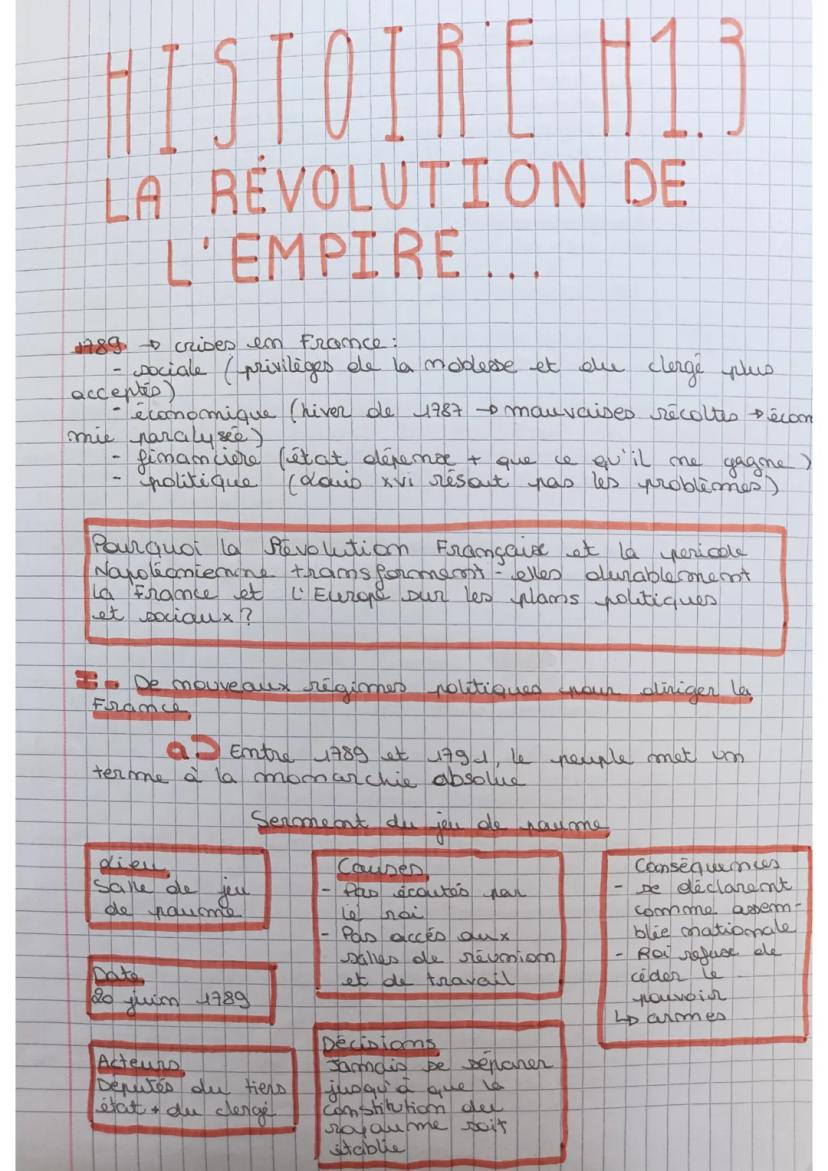 HISTOIRE H1.3
LA RÉVOLUTION DE
L'EMPIRE...
1789 → crises en France :
- sociale (privilèges de la noblesse et du clergé plus
acceptés)
- économique (hiver de 1787 → mauvaises récoltes → écono
mie paralysée)
- financière (état dépense + que ce qu'il ne gagne)
- politique (Louis XVI résout pas les problèmes)
Pourquoi la Révolution Française et la periode
Napoléonienne transforment-elles durablement
la France et l'Europe sur les plans politiques
et sociaux ?
I - De nouveaux régimes politiques pour diriger la
France
a) Entre 1789 et 1791, le peuple met un
terme à la monarchie absolue
Serment du jeu de paume
Lieu
Salle de jeu
de paume
Date
20 juin 1789
Acteurs
Députés du tiers
état + du clergé
Causes
- Pas écoutés par
le roi
- Pas accés aux
salles de réunion
et de travail
Décisions
Jamais se séparer
jusqu'à que la
constitution du
royaume soit
établie
Conséquences
- se déclarent
comme assem-
blée nationale
- Roi refuse de
céder le
pouvoir
↳ armes